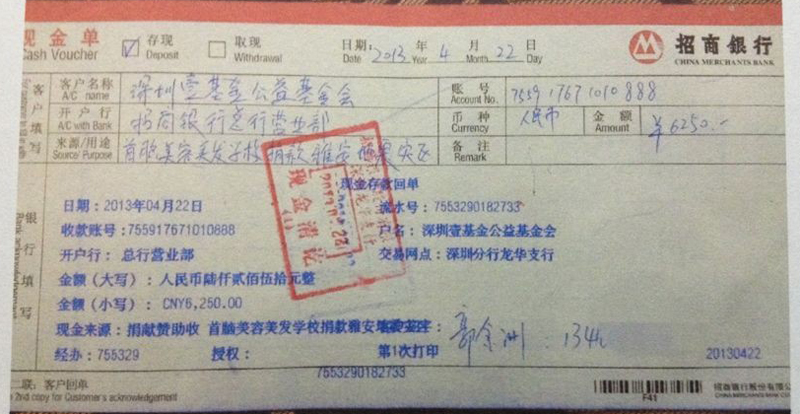 现金单 存现 取现 日期: 2013 年 4 月 22 日 招商银行
Cash Voucher Deposit Withdrawal Date Year Month Day CHINA MERCHANTS BANK
客户填写
客户名称 深圳壹基金公益基金会 账号 7559 1767 1010 888
A/C name Account No.
开户行 招商银行总行营业部 币种 人民币 金额 ¥6250.-
A/C with Bank Currency Amount
来源/用途 首脑美容美发学校捐款雅安地震灾区 备注
Source/ Purpose Remark
现金存款回单
日期：2013年04月22日 流水号：7553290182733
收款账号：755917671010888 户名：深圳壹基金公益基金会
开户行：总行营业部 交易网点：深圳分行龙华支行
银行填写
金额（大写）：人民币陆仟贰佰伍拾元整
金额（小写）：CNY6,250.00
现金来源：捐献赞助收 首脑美容美发学校捐款雅安
郭金洲 134
经办：755329 授权： 第1次打印 20130422
7553290182733
现金清讫
二联：客户回单 招商银行股份有限公
2nd copy for Customer's acknowledgement F41 CHINA MERCHANTS BANK CO